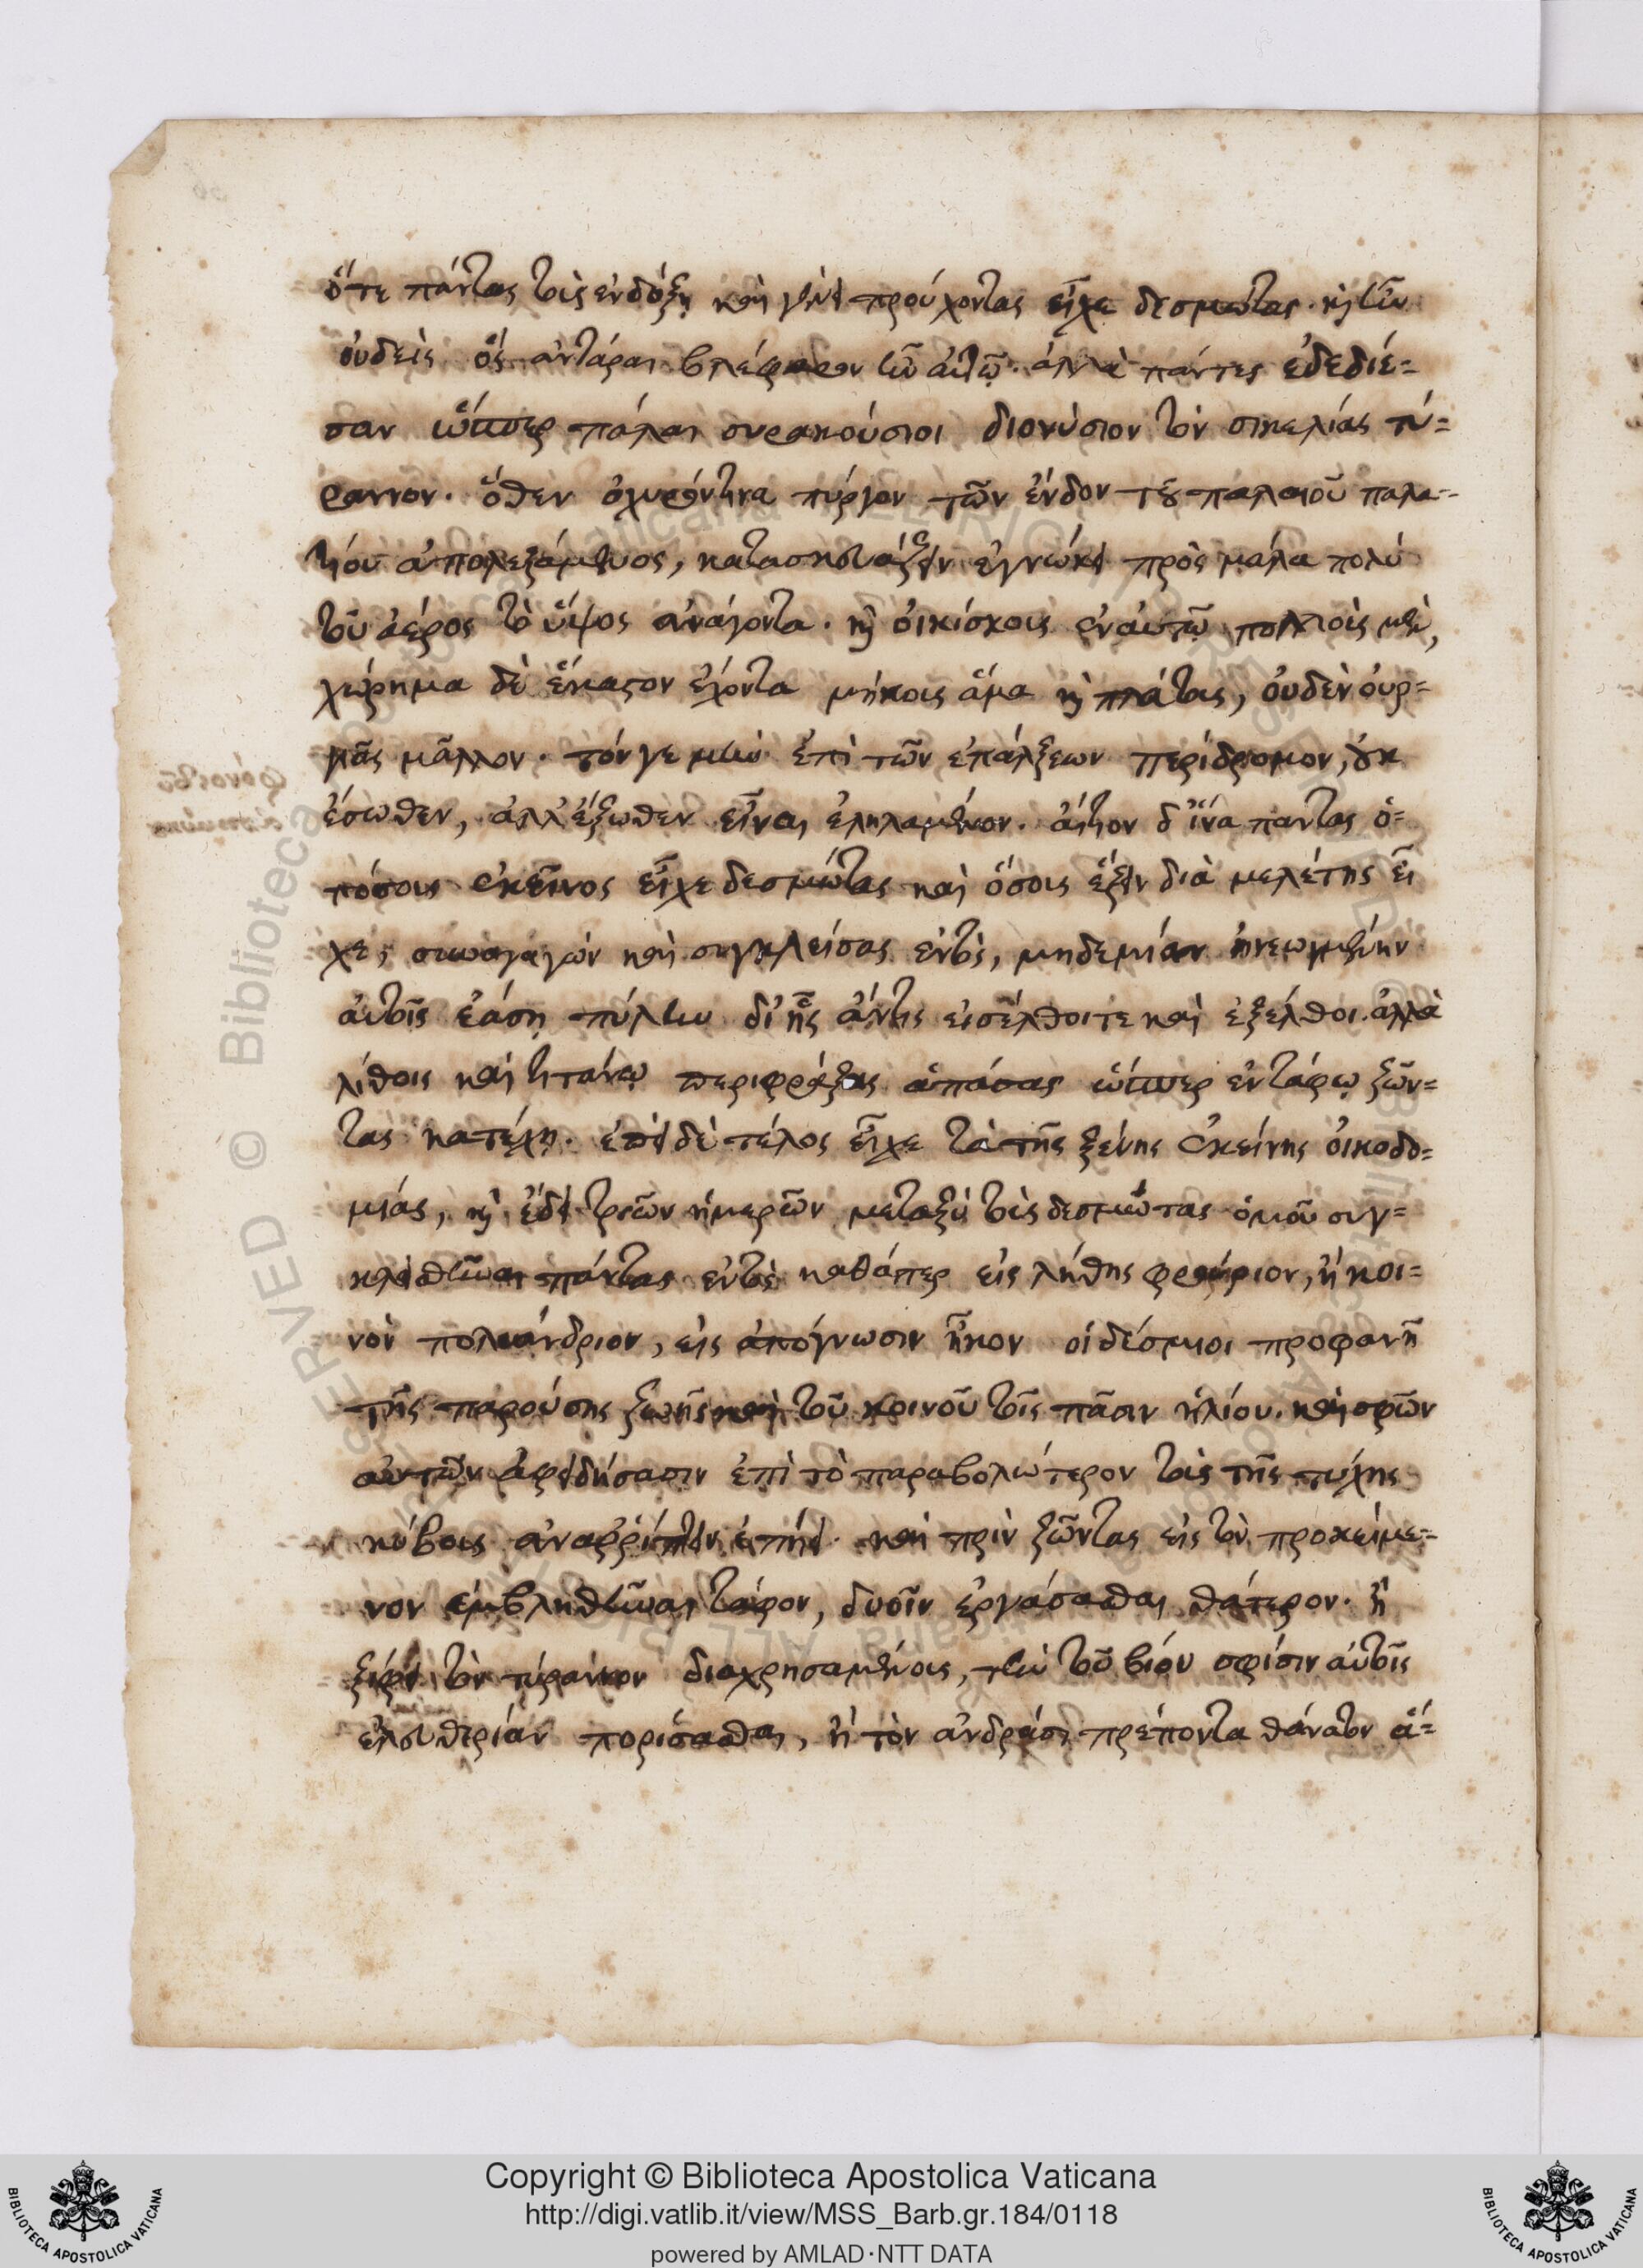 ὅτε πάντας τοὺς ἐνδόξῃ καὶ γένει προύχοντας εἶχε δεσμώτας. καὶ ἦν
οὐδεὶς ὃς ἀντάραι βλέφαρον ἦν αὐτῷ. ἀλλὰ πάντες ἐδεδίε=
σαν ὥσπερ πάλαι συρακούσιοι διονύσιον τὸν σικελίας τύ=
ραννον. ὅθεν ὀχυρόν τινα πύργον τῶν ἔνδον τοῦ παλαιοῦ παλα=
τίου ἀπολεξάμενος, κατασκευάζειν ἐγνώκει πρὸς μάλα πολὺ
τοῦ ἀέρος τὸ ὕψος ἀνάγοντα. καὶ οἰκίσκους ἐν αὐτῷ πολλοὺς μὲν,
χώρημα δὲ ἕκαστον ἔχοντα μήκους ἅμα καὶ πλάτους, οὐδὲν ὀυρ=
γιᾶς μᾶλλον. τόν γε μὴν ἐπὶ τῶν ἐπάλξεων περίδρομον, οὐκ
ἔσωθεν, ἀλλ' ἔξωθεν εἶναι ἐληλαμένον. αἴτιον δ' ἵνα πάντας ὁ=
πόσους ἐκεῖνος εἶχε δεσμώτας καὶ ὅσους ἕξειν διὰ μελέτης εἶ
χε, συναγαγών καὶ συγκλείσας ἐντὸς, μηδεμίαν ἠνεωγμένην
αὐτοῖς ἐάσῃ πύλην δι' ἧς ἄν τις εἰσέλθοι τε καὶ ἐξέλθοι. ἀλλὰ
λίθοις καὶ τιτάνῳ περιφράξας ἁπάσας ὥσπερ ἐν τάφῳ ζῶν=
τας κατέχῃ. ἐπεὶ δὲ τέλος εἶχε τὰ τῆς ξένης ἐκείνης οἰκοδο=
μίας, καὶ ἔδει τριῶν ἡμερῶν μεταξὺ τοὺς δεσμώτας ὁμοῦ συγ=
κλεισθῆναι πάντας ἐντὸς καθάπερ εἰς λήθης φρούριον, ἢ κοι=
νὸν πολυάνδριον, εἰς ἀπόγνωσιν ἧκον οἱ δέσμιοι προφανῆ
τῆς παρούσης ζωῆς καὶ τοῦ κοινοῦ τοῖς πᾶσιν ἡλίου. καὶ σφῶν
αὐτῶν ἀφειδήσασιν ἐπὶ τὸ παραβολώτερον τοὺς τῆς τύχης
κύβους ἀναῤῥίπτειν ἐπῄει. καὶ πρὶν ζῶντας εἰς τὸν προκείμε=
νον ἐμβληθῆναι τάφον, δυοῖν ἐργάσασθαι θάτερον. ἢ
ξίφει τὸν τύραννον διαχρησαμένους, τὴν τοῦ βίου σφίσιν αὐτοῖς
ἐλευθερίαν πορίσασθαι, ἢ τὸν ἀνδράσι πρέποντα θάνατον ἅ=
Copyright © Biblioteca Apostolica Vaticana
http://digi.vatlib.it/view/MSS_Barb.gr.184/0118
powered by AMLAD·NTT DATA
BIBLIOTECA APOSTOLICA VATICANA
BIBLIOTECA APOSTOLICA VATICANA